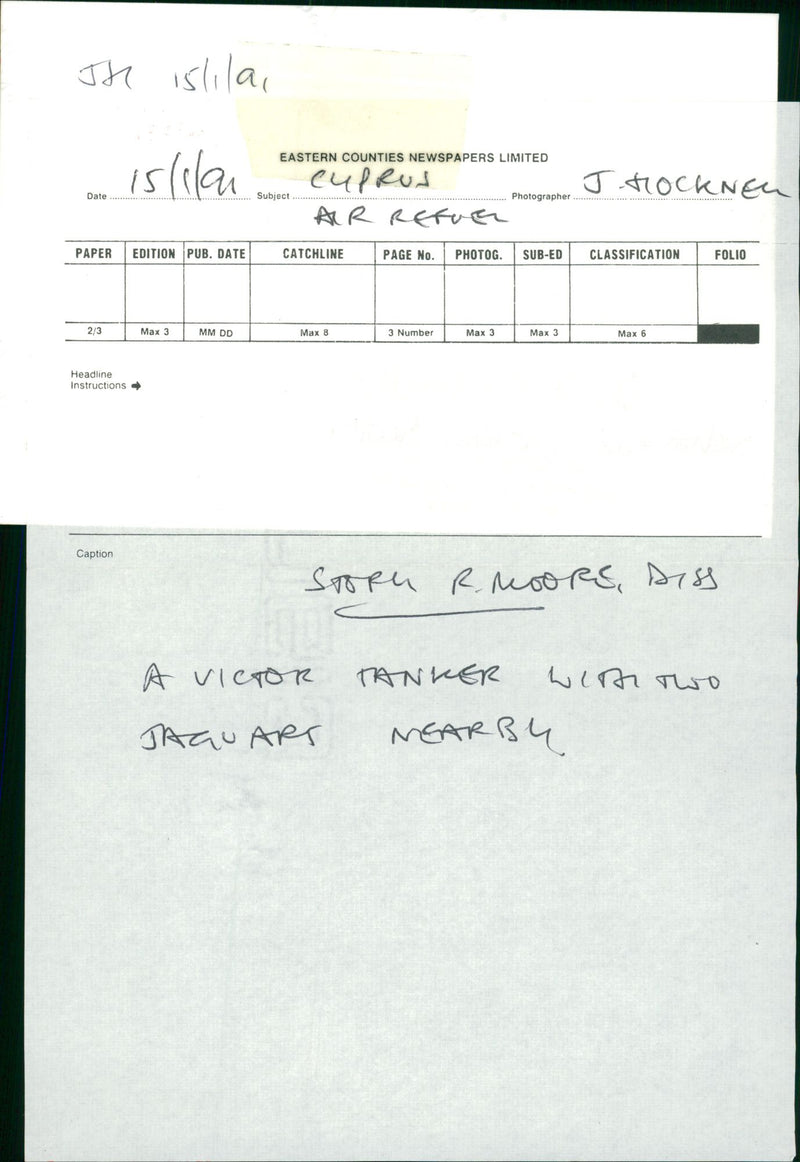 JH 15/1/91
EASTERN COUNTIES NEWSPAPERS LIMITED
Date 15/1/91 Subject CYPRUS Photographer J. HOCKNELL
AIR REFUEL
PAPER EDITION PUB. DATE CATCHLINE PAGE No. PHOTOG. SUB-ED CLASSIFICATION FOLIO
2/3 Max 3 MM DD Max 8 3 Number Max 3 Max 3 Max 6
Headline
Instructions ➔
Caption
STORY R. MOORE, DISS
A VICTOR TANKER WITH TWO
JAGUARS NEARBY